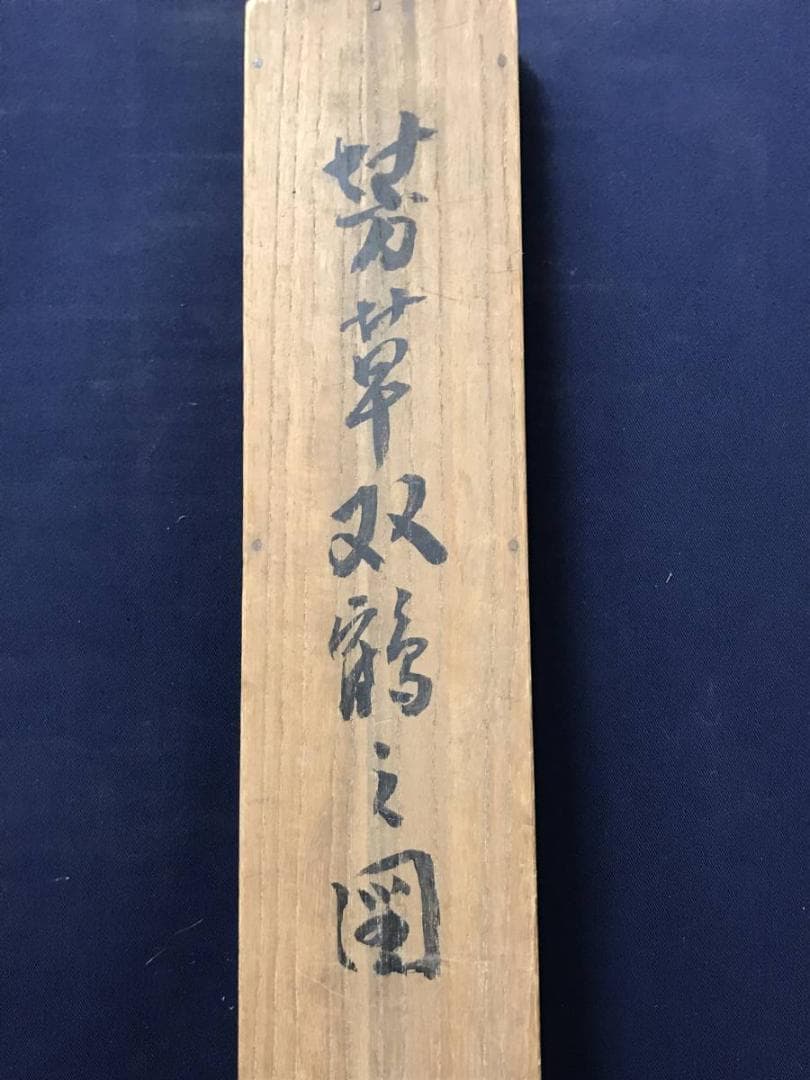 芳草双鶴之圖